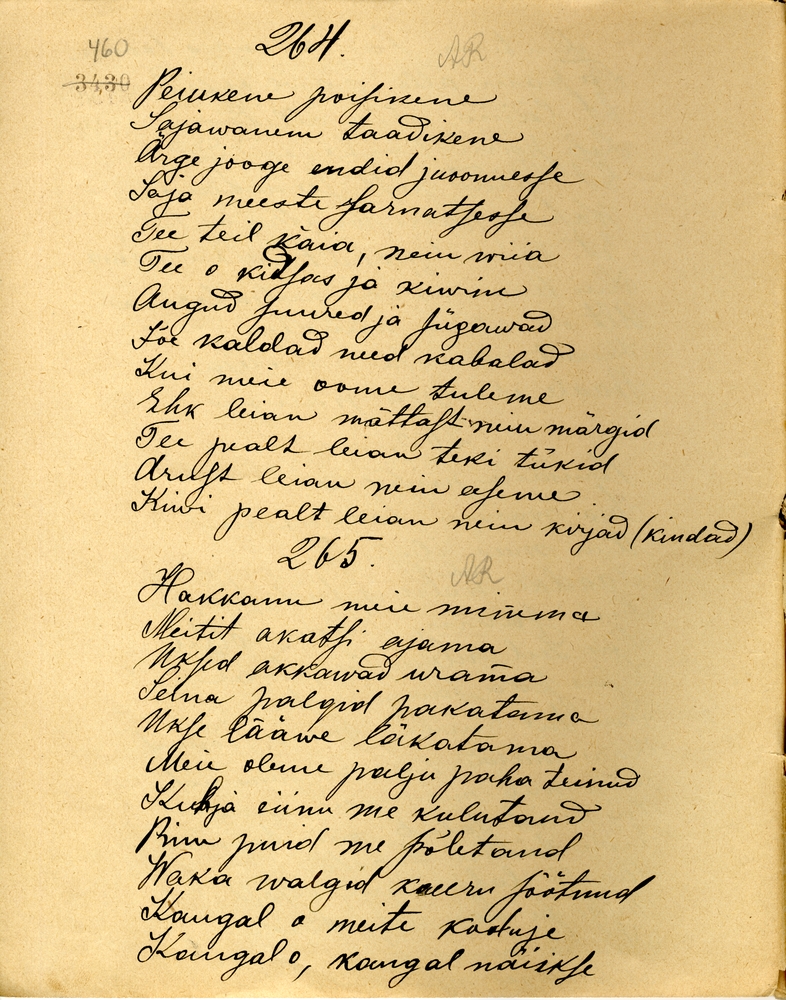 460
264.
AR
3430
Peiukene poisikene
Sajawanem taadikene
Ärge jooge endid juoonuesse
Saja meeste sarnatsesse
Tee teil käia, nein wiia
Tee o kidsas ja kiwine
Augud suured ja sügawad
Joe kaldad need kabalad
Kui meie oome tuleme
Ehk leian mättast nein märgid
Tee pealt leian teki tükid
Arust leian nein aseme
Kiwi pealt leian nein kirjad (kindad)
265.
AR
Hakkame meie minema
Meitit akatsi ajama
Uksed akkawad urama
Seina palgid pakatama
Ukse lääwe läkatama
Meie oleme palju paha teinud
Kuhja einu me kulutand
Rinu puid me põletand
Waka walgid kaeru söötnud
Kaugal o meite koduje
Kaugal o, kaugal näikse